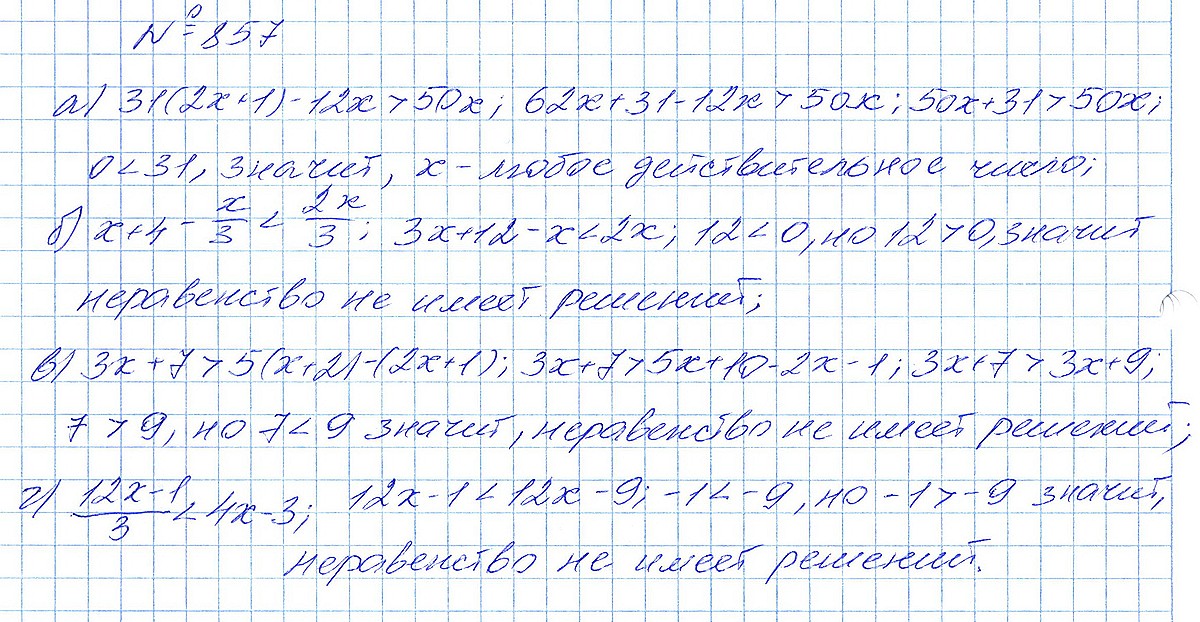 № 857
а) 31(2x+1) - 12x > 50x; 62x+31-12x > 50x; 50x+31 > 50x;
0 < 31, значит, x - любое действительное число;
б) x+4 - x/3 < 2x/3; 3x+12-x < 2x; 12 < 0, но 12 > 0, значит
неравенство не имеет решений;
в) 3x+7 > 5(x+2)-(2x+1); 3x+7 > 5x+10-2x-1; 3x+7 > 3x+9;
7 > 9, но 7 < 9 значит, неравенство не имеет решений;
г) (12x-1)/3 < 4x-3; 12x-1 < 12x-9; -1 < -9, но -1 > -9 значит,
неравенство не имеет решений.